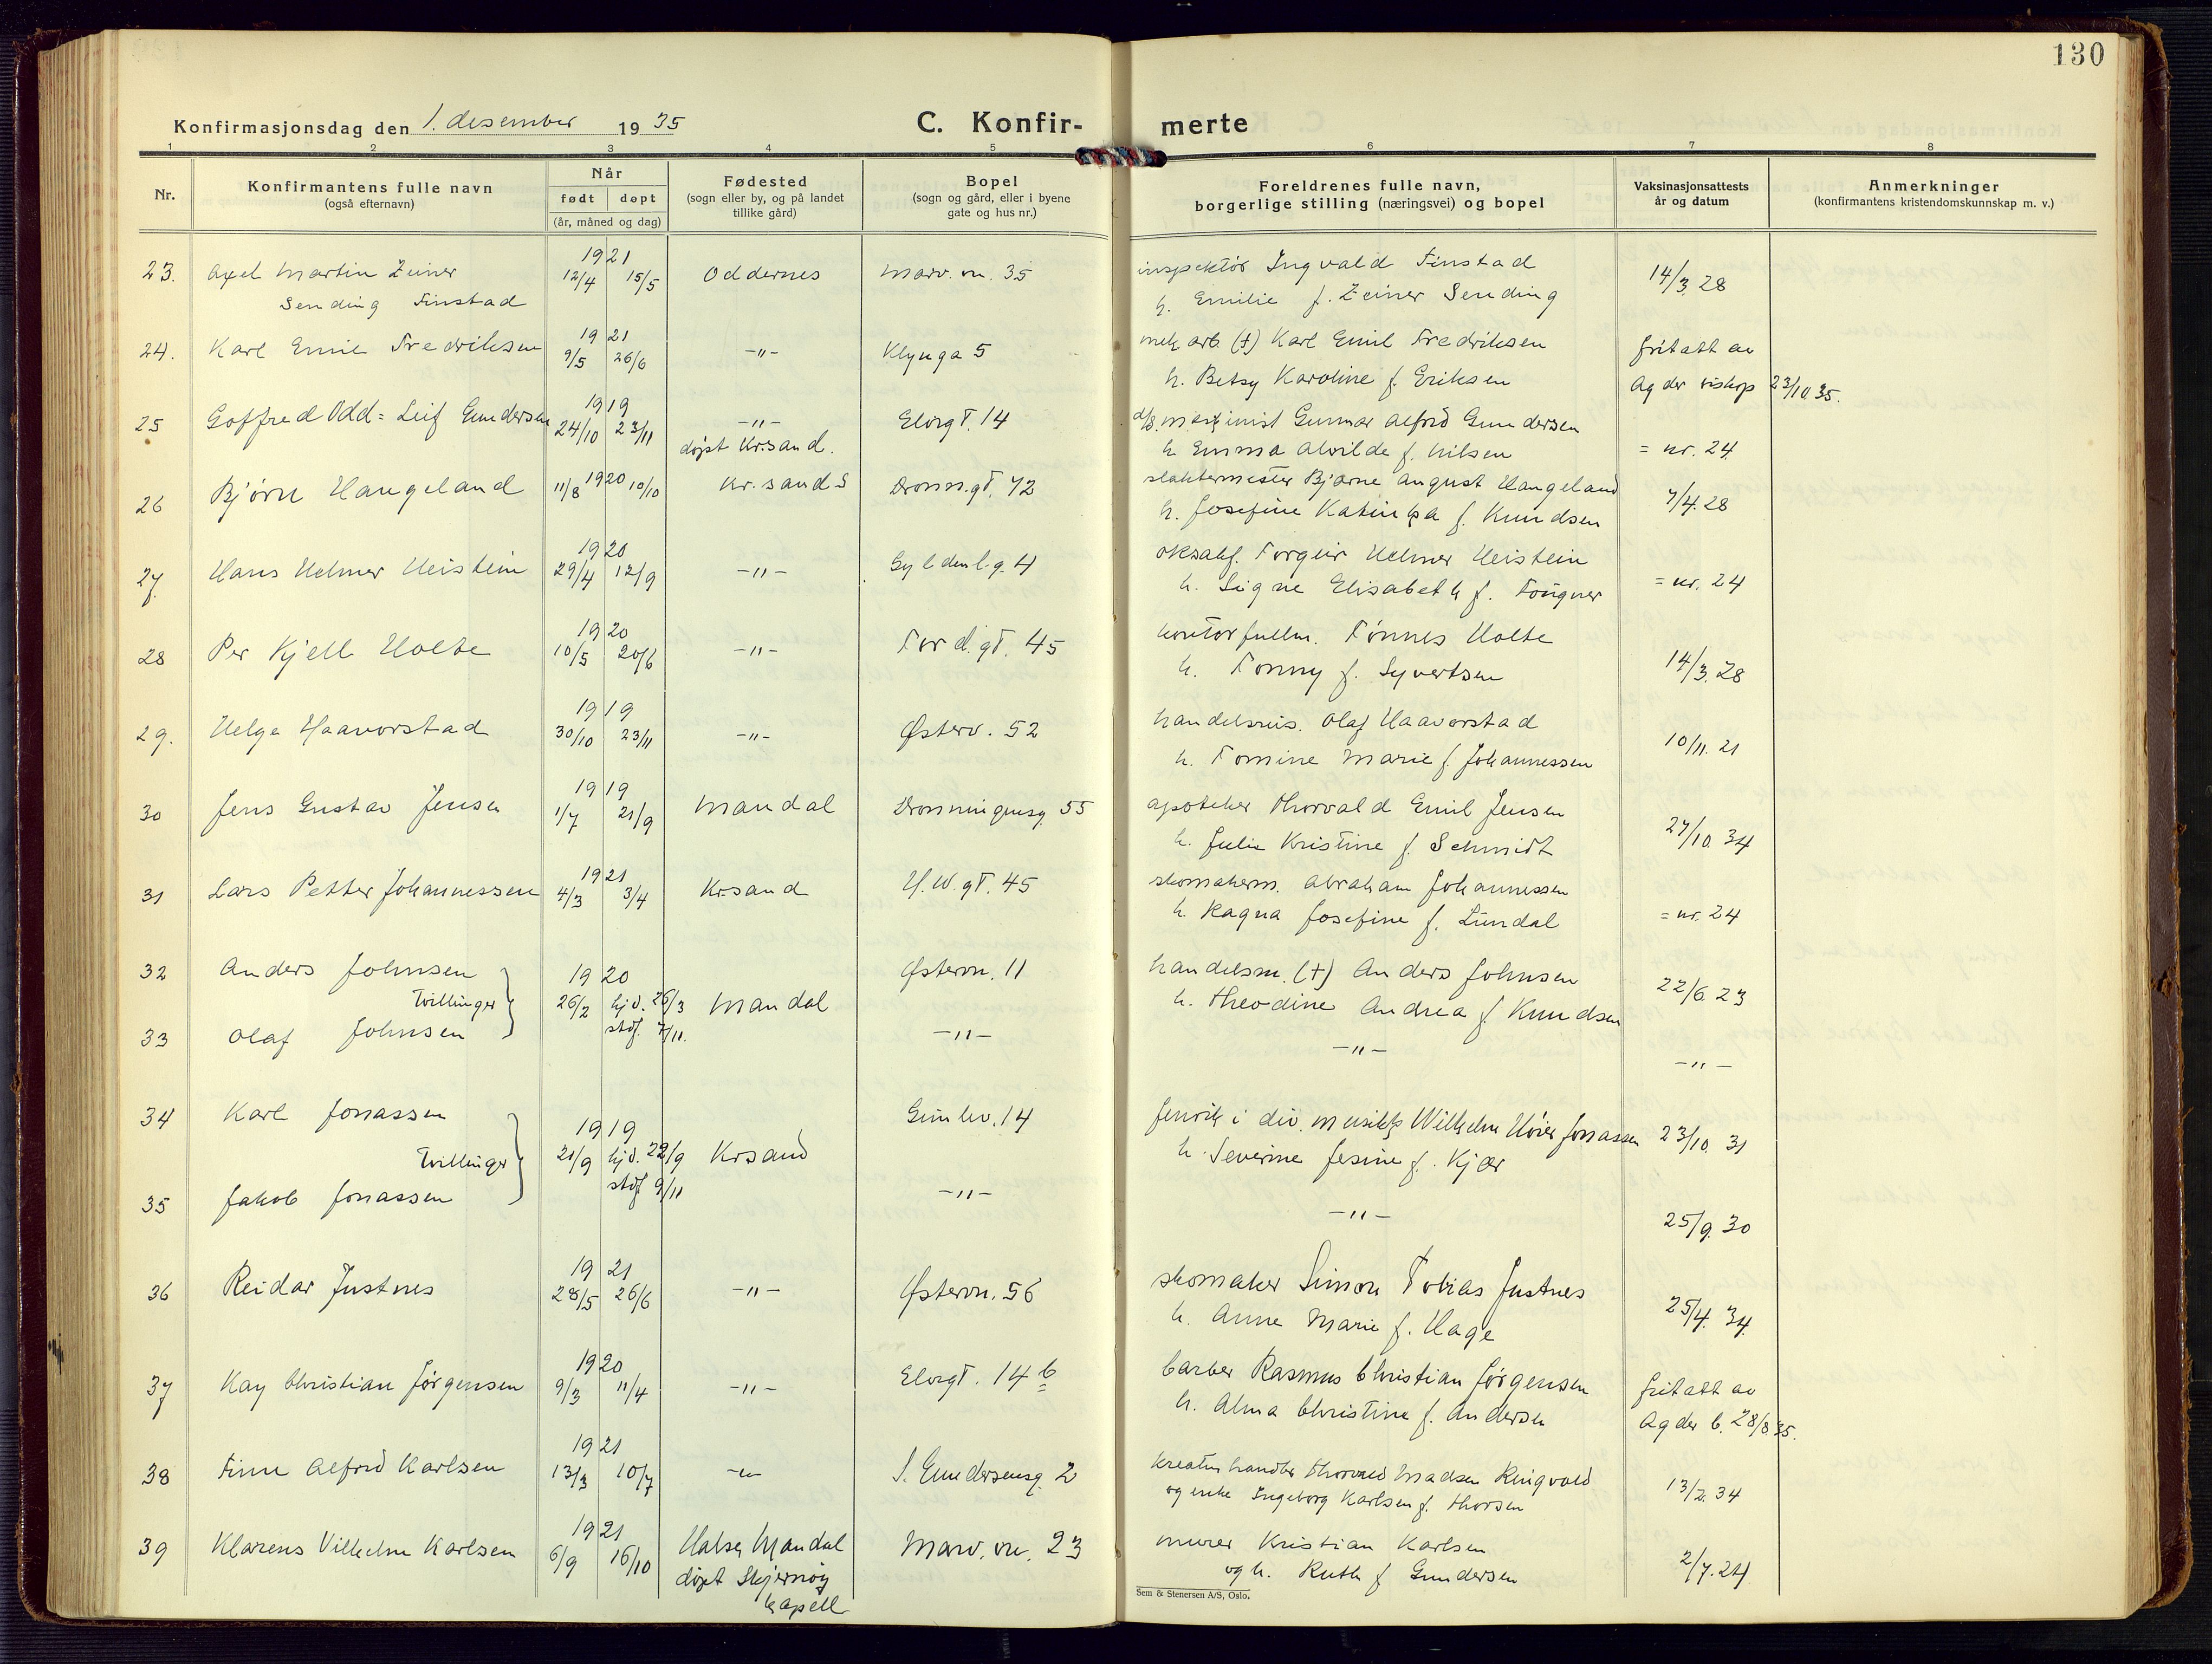 130
Konfirmasjonsdag den 1. desember 1935
C. Konfir- merte
1 2 3 4 5 6 7 8
Nr.
Konfirmantens fulle navn
(også efternavn)
Når
født døpt
(år, måned og dag)
Fødested
(sogn eller by, og på landet
tillike gård)
Bopel
(sogn og gård, eller i byene
gate og hus nr.)
Foreldrenes fulle navn,
borgerlige stilling (næringsvei) og bopel
Vaksinasjonsattests
år og datum
Anmerkninger
(konfirmantens kristendomskunnskap m. v.)
23. Axel Martin Zeiner 1921 12/4 15/5 Oddernes Marv. vn. 35 inspektör Ingvald Finstad 14/3 28
Sending Finstad h. Emilie f. Zeiner Sending
24. Karl Emil Fredriksen 1921 9/5 26/6 -"- Klynga 5 mek arb (†) Karl Emil Fredriksen fritatt av
h. Betsy Karoline f. Eriksen Agder biskop 23/10 35.
25 Goffred Odd = Leif Gundersen 1919 24/10 23/11 -"- Elvegt. 14 Gunnar Alfred Gundersen
døpt Kr.sand. h Emma Alvilde f. Nilsen = nr. 24
26 Bjørn Haugeland 11/8 1920 10/10 Kr.sand S Dronn.gt. 72 slaktermester Bjarne August Haugeland 7/4.28
h. Josefine Katinka f. Knudsen
27. Hans Helmer Heistein 1920 29/4 12/9 -"- Gyldenl.g. 4 Torgeir Helmer Heistein
h. Signe Elisabeth f. Fougner = nr. 24
28 Per Kjell Holte 1920 10/5 20/6 -"- Tord.gt. 45 kontorfullm. Tønnes Holte
h. Tonny f. Syvertsen 14/3. 28
29. Helge Haavorstad 1919 30/10 23/11 -"- Østerv. 52 handelsreis. Olaf Haavorstad
h. Tomine Marie f. Johannessen 10/11. 21
30 Jens Gustav Jensen 1919 1/7 21/9 Mandal Dronningensg. 55 apoteker Thorvald Emil Jensen
h. Julie Kristine f. Schmidt 27/10. 34
31 Lars Petter Johannessen 1921 4/3 3/4 Krsand H.W.gt. 45 skomakerm. Abraham Johannessen
h. Ragna Josefine f. Lundal = nr. 24
32 Anders Johnsen 1920 Østervn. 11 handelsm. (†) Anders Johnsen
Tvillinger 26/2 hj.d. 26/3 Mandal h. Theodine Andrea f. Knudsen 22/6. 23
33 Olaf Johnsen stdf. 7/11. -"- -"- -"-
34 Karl Jonassen 1919 Gimlev. 14 fenrik i div. musikk Wilhelm Høier Jonassen 23/10 31
Tvillinger 21/9 hj.d. 22/9 Krsand h. Severine Jesine f. Kjær
35 Jakob Jonassen stdf 9/11 -"- -"- 25/9. 30
36 Reidar Justnes 1921 28/5 26/6 -"- Østervn. 56 skomaker Simon Tobias Justnes
h. Anne Marie f. Hage 25/4. 34.
37 Kay Christian Jørgensen 1920 9/3 11/4 -"- Elvegt. 14 b barber Rasmus Christian Jørgensen fritatt av
h. Alma Christine f. Andersen Agder b. 28/8 35.
38 Finn Alfred Karlsen 1921 13/3 10/7 -"- S. Gundersensg. 2 kreaturhandler Thorvald Madsen Ringvold
og enke Ingeborg Karlsen f. Thorsen 13/2. 34
39 Klarens Vilhelm Karlsen 1921 6/9 16/10 Halse, Mandal Marv. vn. 23 murer Kristian Karlsen
døpt Skjernøy og h. Ruth f Gundersen 2/7.24
kapell
Sem & Stenersen A/S, Oslo.